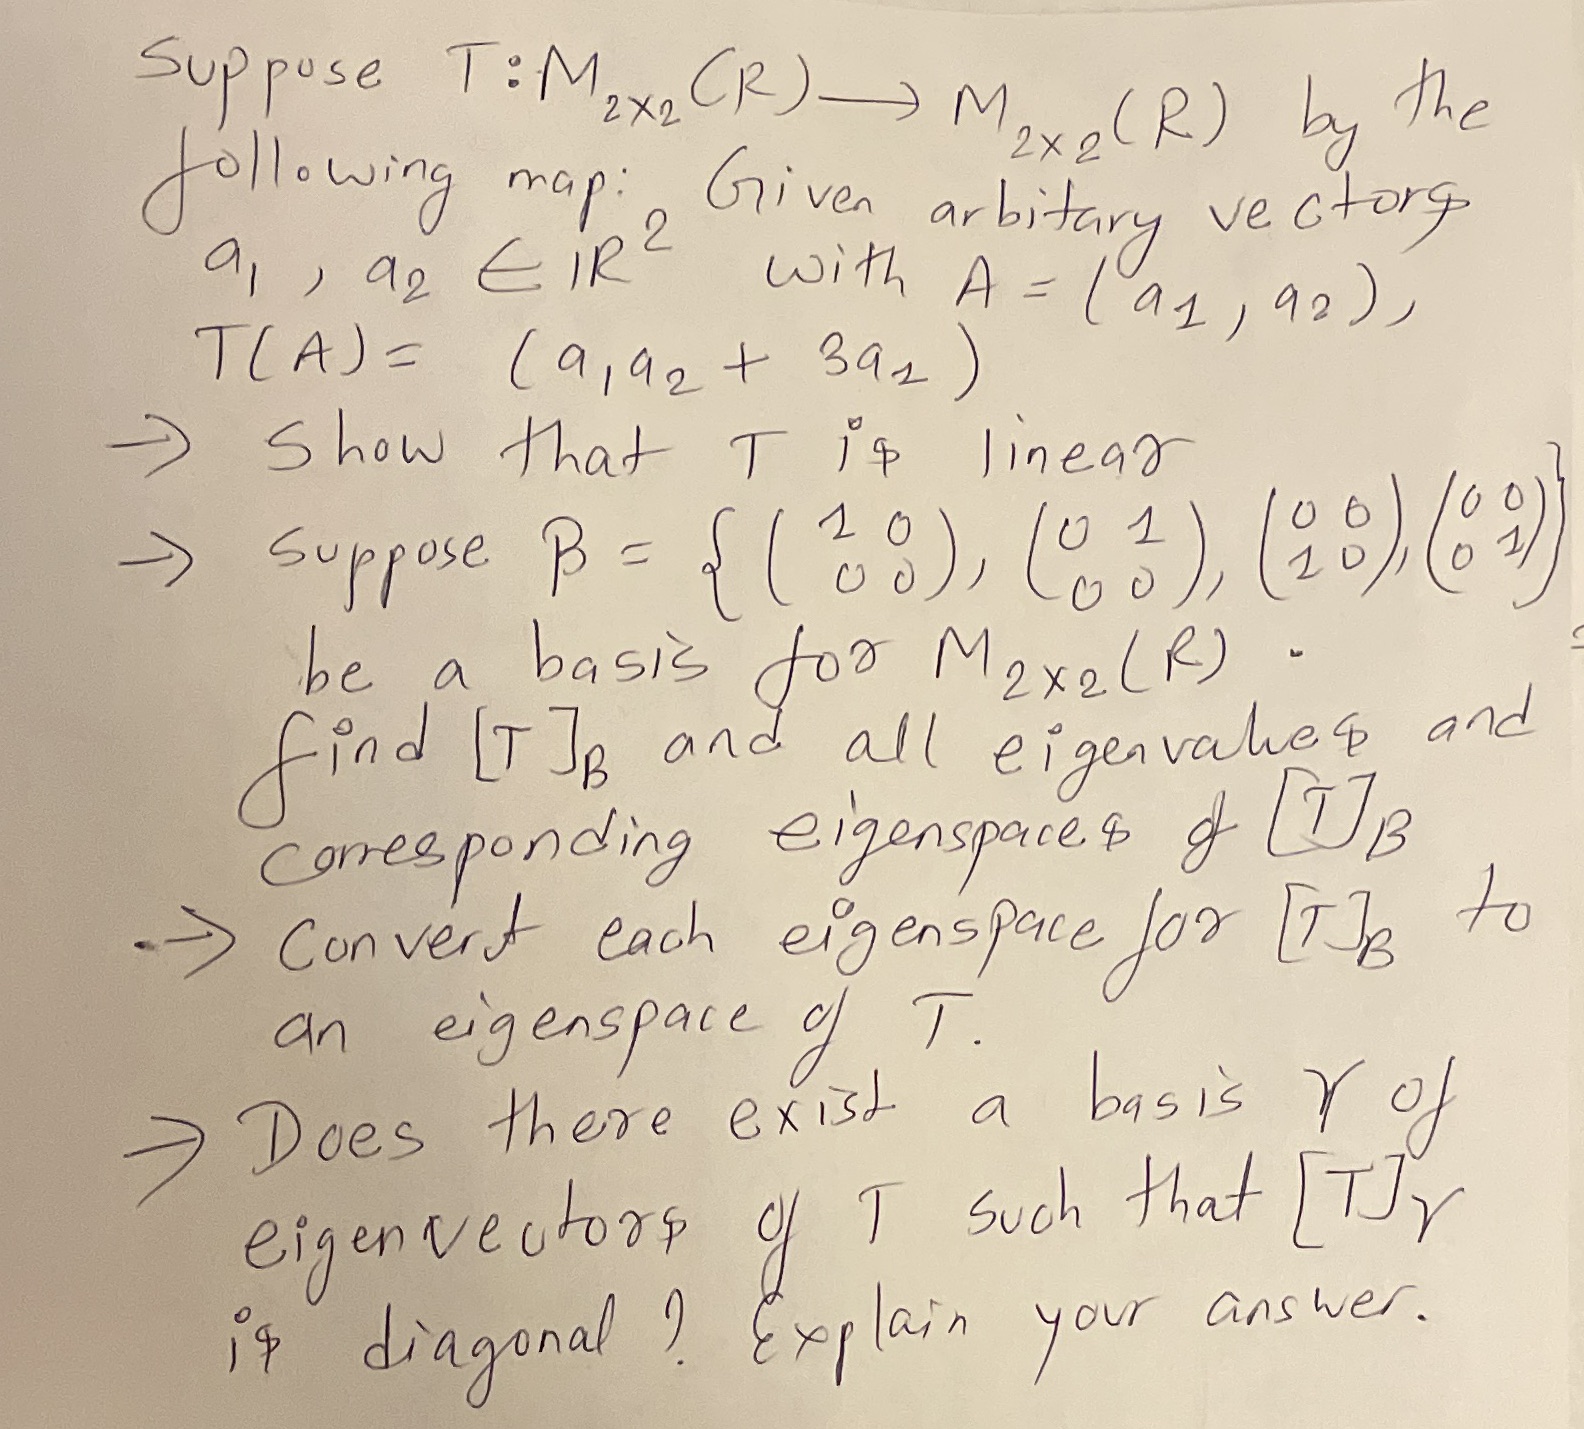 Suppose T:M₂ₓ₂(R)→M₂ₓ₂(R) by the
following map: Given arbitary vectors
a₁, a₂ ∈ ℝ² with A = (a₁, a₂),
T(A) = (a₁a₂ + 3a₁)
→ Show that T is linear
→ Suppose β = {(1 0
0 0), (0 1
0 0), (0 0
1 0), (0 0
0 1)}
be a basis for M₂ₓ₂(R).
find [T]β and all eigenvalues and
corresponding eigenspaces of [T]β
→ Convert each eigenspace for [T]β to
an eigenspace of T.
→ Does there exist a basis γ of
eigenvectors of T such that [T]γ
is diagonal? Explain your answer.